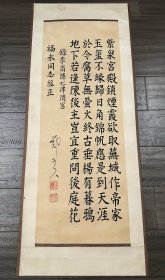 紫泉宮殿鎖煙霞欲取蕪城作帝家
玉璽不緣歸日角錦帆應是到天涯
於今腐草無螢火終古垂楊有暮鴉
地下若逢陳後主豈宜重問後庭花
錄李商隱七律隋宮
福永同志雅正